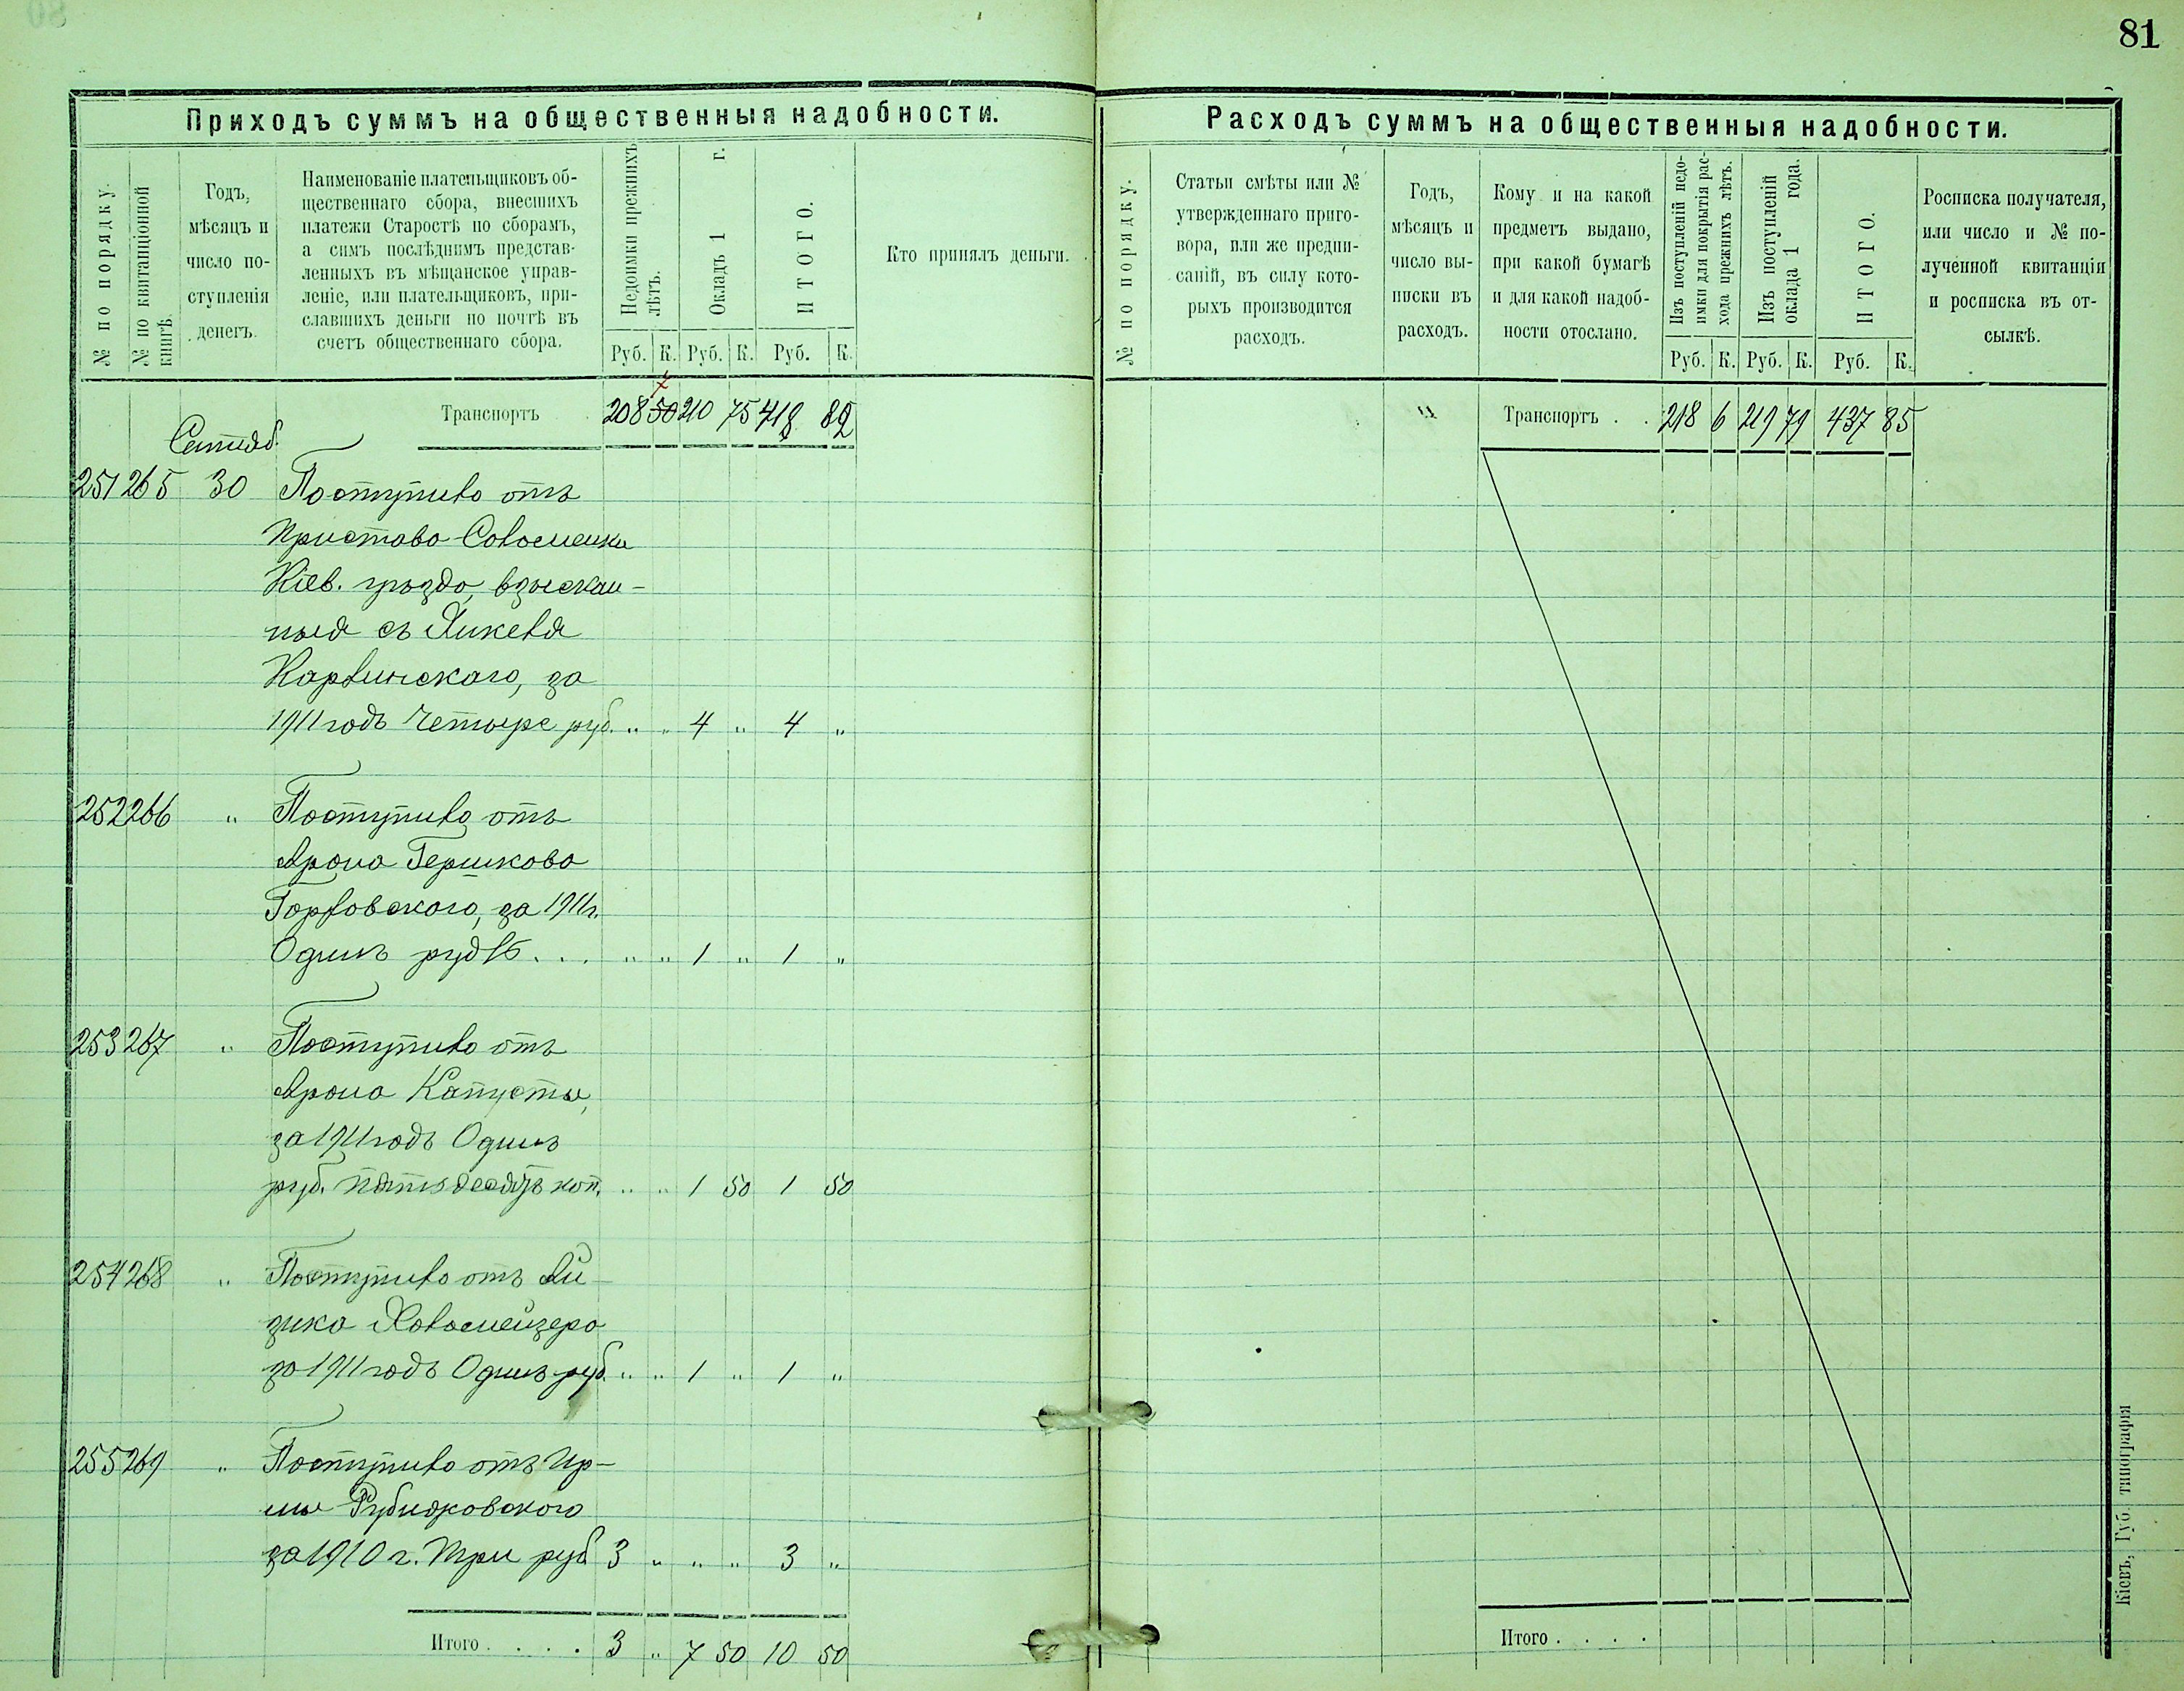 81
Приходъ суммъ на общественныя надобности.
№ по порядку.
№ по квитанціонной
книгѣ.
Годъ,
мѣсяцъ и
число по-
ступленія
денегъ.
Наименованіе плательщиковъ об-
щественнаго сбора, внесшихъ
платежи Старостѣ по сборамъ,
а симъ послѣднимъ представ-
ленныхъ въ мѣщанское управ-
леніе, или плательщиковъ, при-
славшихъ деньги по почтѣ въ
счетъ общественнаго сбора.
Недоимки прежнихъ
лѣтъ.
Окладъ 1 г.
ИТОГО.
Кто принялъ деньги.
Руб. К. Руб. К. Руб. К.
Транспортъ 208 50 210 75 418 82
Сентяб.
251 265 30 Поступило отъ
Пристава Соломенки
Кіев. уѣзда, взыскан-
ныя съ Янкеля
Карлинскаго, за
1911 годъ Четыре руб. " " 4 " 4 "
252 266 " Поступило отъ
Арона Гершкова
Горловского, за 1911 г.
Одинъ рубль . . . " " 1 " 1 "
253 267 " Поступило отъ
Арона Капусты,
за 1911 годъ Одинъ
руб. пятьдесятъ коп. " " 1 50 1 50
254 268 " Поступило отъ Ай-
зика
за 1911 годъ Одинъ руб. " " 1 " 1 "
255 269 " Поступило отъ Ир-
мы
за 1910 г. Три руб 3 " " " 3 "
Итого . . . . 3 " 7 50 10 50
Расходъ суммъ на общественныя надобности.
№ по порядку.
Статьи смѣты или №
утвержденнаго приго-
вора, или же предпи-
саній, въ силу кото-
рыхъ производится
расходъ.
Годъ,
мѣсяцъ и
число вы-
писки въ
расходъ.
Кому и на какой
предметъ выдано,
при какой бумагѣ
и для какой надоб-
ности отослано.
Изъ поступленій недо-
имки для покрытія рас-
хода прежнихъ лѣтъ.
Изъ поступленій
оклада 1 года.
ИТОГО.
Росписка получателя,
или число и № по-
лученной квитанціи
и росписка въ от-
сылкѣ.
Руб. К. Руб. К. Руб. К.
Транспортъ . . 218 6 219 79 437 85
Итого . . . .
Кіевъ, Губ. типографія